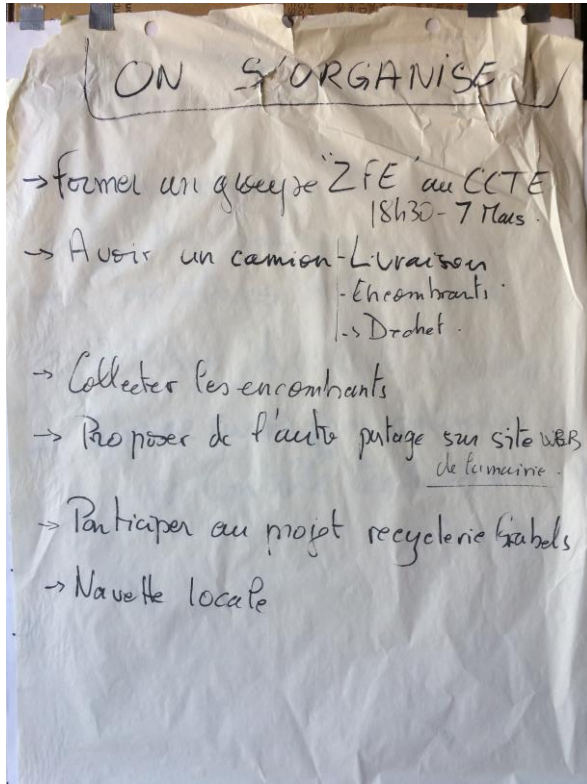 ON S'ORGANISE
→ Former un groupe "ZFE" au CCTE
18h30 - 7 Mars.
→ Avoir un camion - Livraison
- Encombrants.
-> Drchet.
→ Collecter les encombrants
→ Proposer de l'autre partage sur site WEB
de la mairie.
→ Participer au projet recyclerie Grabels
→ Navette locale